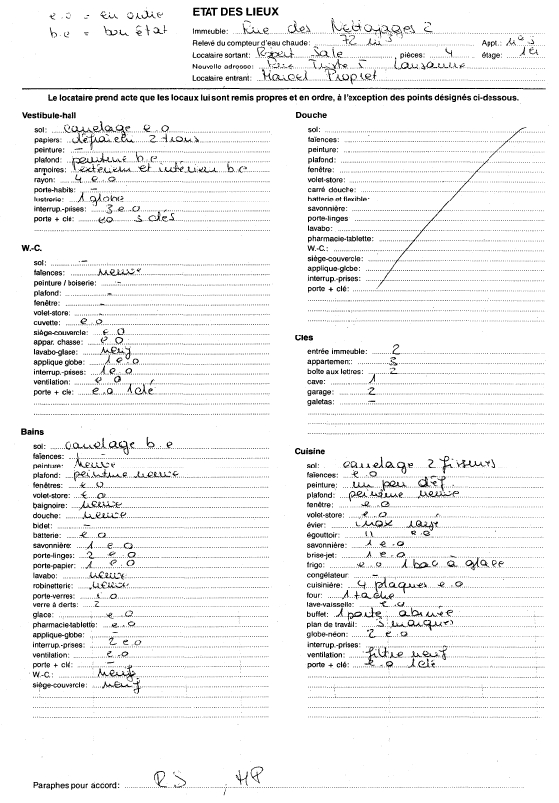 e.o = en ordre
b.e = bon état
ETAT DES LIEUX
Immeuble: Rue des Nettoyages 2
Relevé du compteur d'eau chaude: 72 m3 Appt.: N° 3
Locataire sortant: Robert Sale pièces: 4 étage: 1er
Nouvelle adresse: Rue Lausanne
Locataire entrant: Marcel Propret
Le locataire prend acte que les locaux lui sont remis propres et en ordre, à l'exception des points désignés ci-dessous.
Vestibule-hall
sol: carrelage e.o
papiers: défraîchi 2 trous
peinture: –
plafond: peinture b.e
armoires: extérieur et intérieur b.e
rayon: 4 e.o
porte-habits: –
lustrerie: 1 globe
interrup.-prises: 3 e.o
porte + clé: eo 3 clés
W.-C.
sol: –
faïences: neuve
peinture / boiserie: –
plafond: –
fenêtre: –
volet-store: –
cuvette: e.o
siège-couvercle: e.o
appar. chasse: e o
lavabo-glase: neuf
applique globe: 1 e.o
interrup.-prises: 1 e.o
ventilation: e o
porte + clé: e.o 1 clé
Bains
sol: carrelage b e
faïences: –
peinture: neuve
plafond: peinture neuve
fenêtres: e o
volet-store: e o
baignoire: neuve
douche: neuve
bidet: –
batterie: e o
savonnière: 1 e o
porte-linges: 2 e o
porte-papier: 1 e o
lavabo: neuve
robinetterie: neuve
porte-verres: e o
verre à derts: 2
glace: e o
pharmacie-tablette: e.o
applique-globe: –
interrup.-prises: 2 e o
ventilation: e.o
porte + clé: –
W.-C.: neuf
siège-couvercle: neuf
Douche
sol:
faïences:
peinture:
plafond:
fenêtre:
volet-store:
carré douche:
batterie et flexible:
savonnière:
porte-linges
lavabo:
pharmacie-tablette:
W.-C.:
siège-couvercle:
applique-globe:
interrup.-prises:
porte + clé:
Clés
entrée immeuble: 2
appartement: 3
boîte aux lettres: 2
cave: 1
garage: 2
galetas: –
Cuisine
sol: carrelage 2 fissures
faïences: e o
peinture: un peu déf.
plafond: peinture neuve
fenêtre: e o
volet-store: e o
évier: inox rayé
égouttoir: " e o
savonnière: 1 e.o
brise-jet: 1 e o
frigo: e o 1 bac à glace
congélateur: –
cuisinière: 4 plaques e.o
four: 1 tache
lave-vaisselle: e.o
buffet: 1 porte abimée
plan de travail: 3 marques
globe-néon: 2 e.o
interrup.-prises:
ventilation: filtre neuf
porte + clé: e.o 1 clé
Paraphes pour accord: RS, MP